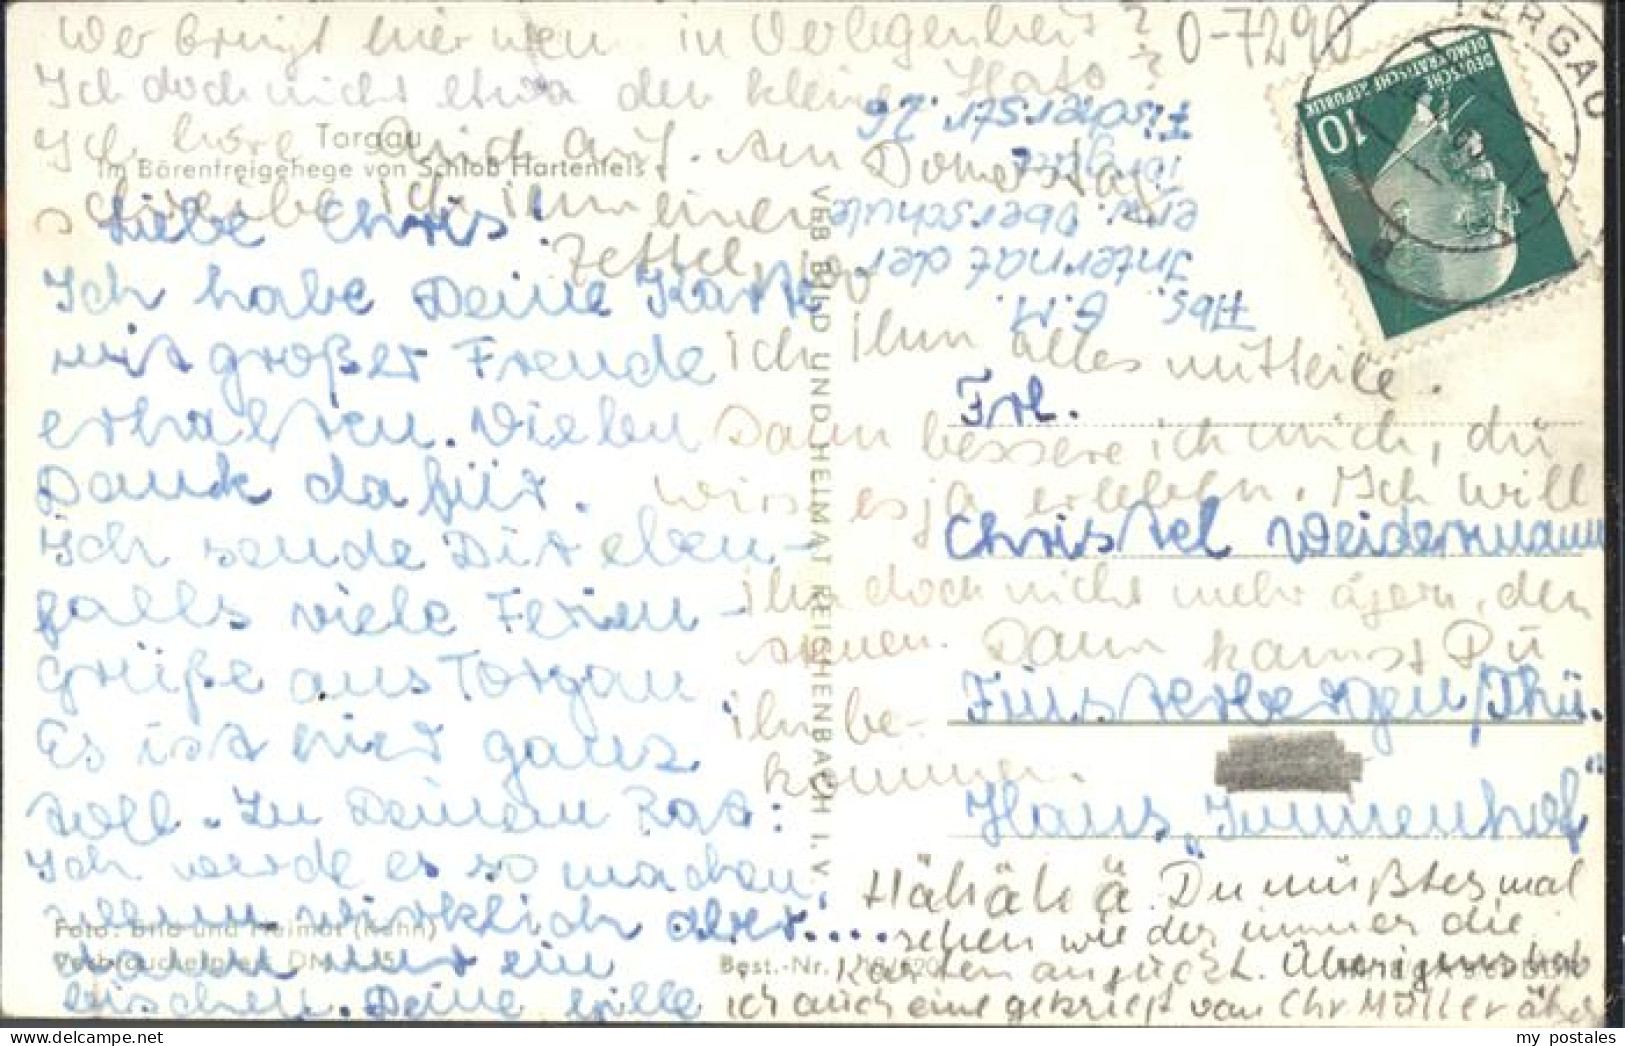 Wer bringt hier wen in Verlegenheit?
Ich doch nicht etwa den kleinen Hato?
Ich höre auch auf. Am Donnerstag
schreibe ich ihm einen
Zettel, wo
ich ihm alles mitteile.
Dann bessere ich mich, du
wirst es ja erleben. Ich will
ihn doch nicht mehr ägern, den
Dann kannst Du
ihn be-
kommen.
Torgau
Im Bärenfreigehege von Schloß Hartenfels
Liebe Chris!
Ich habe Deine Karte
mit großer Freude
erhalten. Vielen
Dank dafür.
Ich sende Dir eben-
falls viele Ferien-
grüße aus Torgau
Es ist hier ganz
toll. Zu Deinem Rat:
Ich werde es so machen,
wirklich aber....
ein
bischen. Deine
Foto: Bild und Heimat (Kühn)
Verbraucherpreis DM
Best.-Nr.
VEB BILD UND HEIMAT REICHENBACH I. V.
Abs. G. M.
Internat der
erw. Oberschule
Torgau
Fischerstr. 26
0-7290
TORGAU
DEUTSCHE
DEMOKRATISCHE REPUBLIK
10
Frl.
Christel Weidermann
Finsterbergen/Thü.
Haus „Immenhof"
Hähähä ä. Du müßtes mal
sehen wie der immer die
Karten anguckt. Überigens hab
ich auch eine gekriegt von Chr Müller
my postales